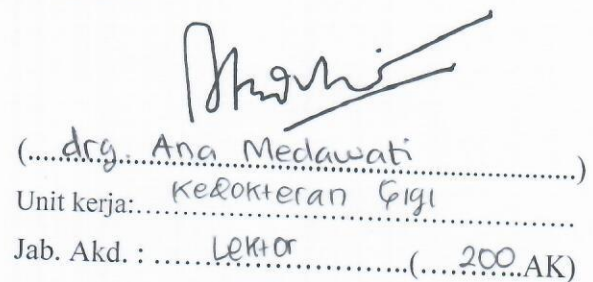 (.....drg. Ana Medawati.....)
Unit kerja:....Kedokteran Gigi.....
Jab. Akd. : ......Lektor......(....200..AK)